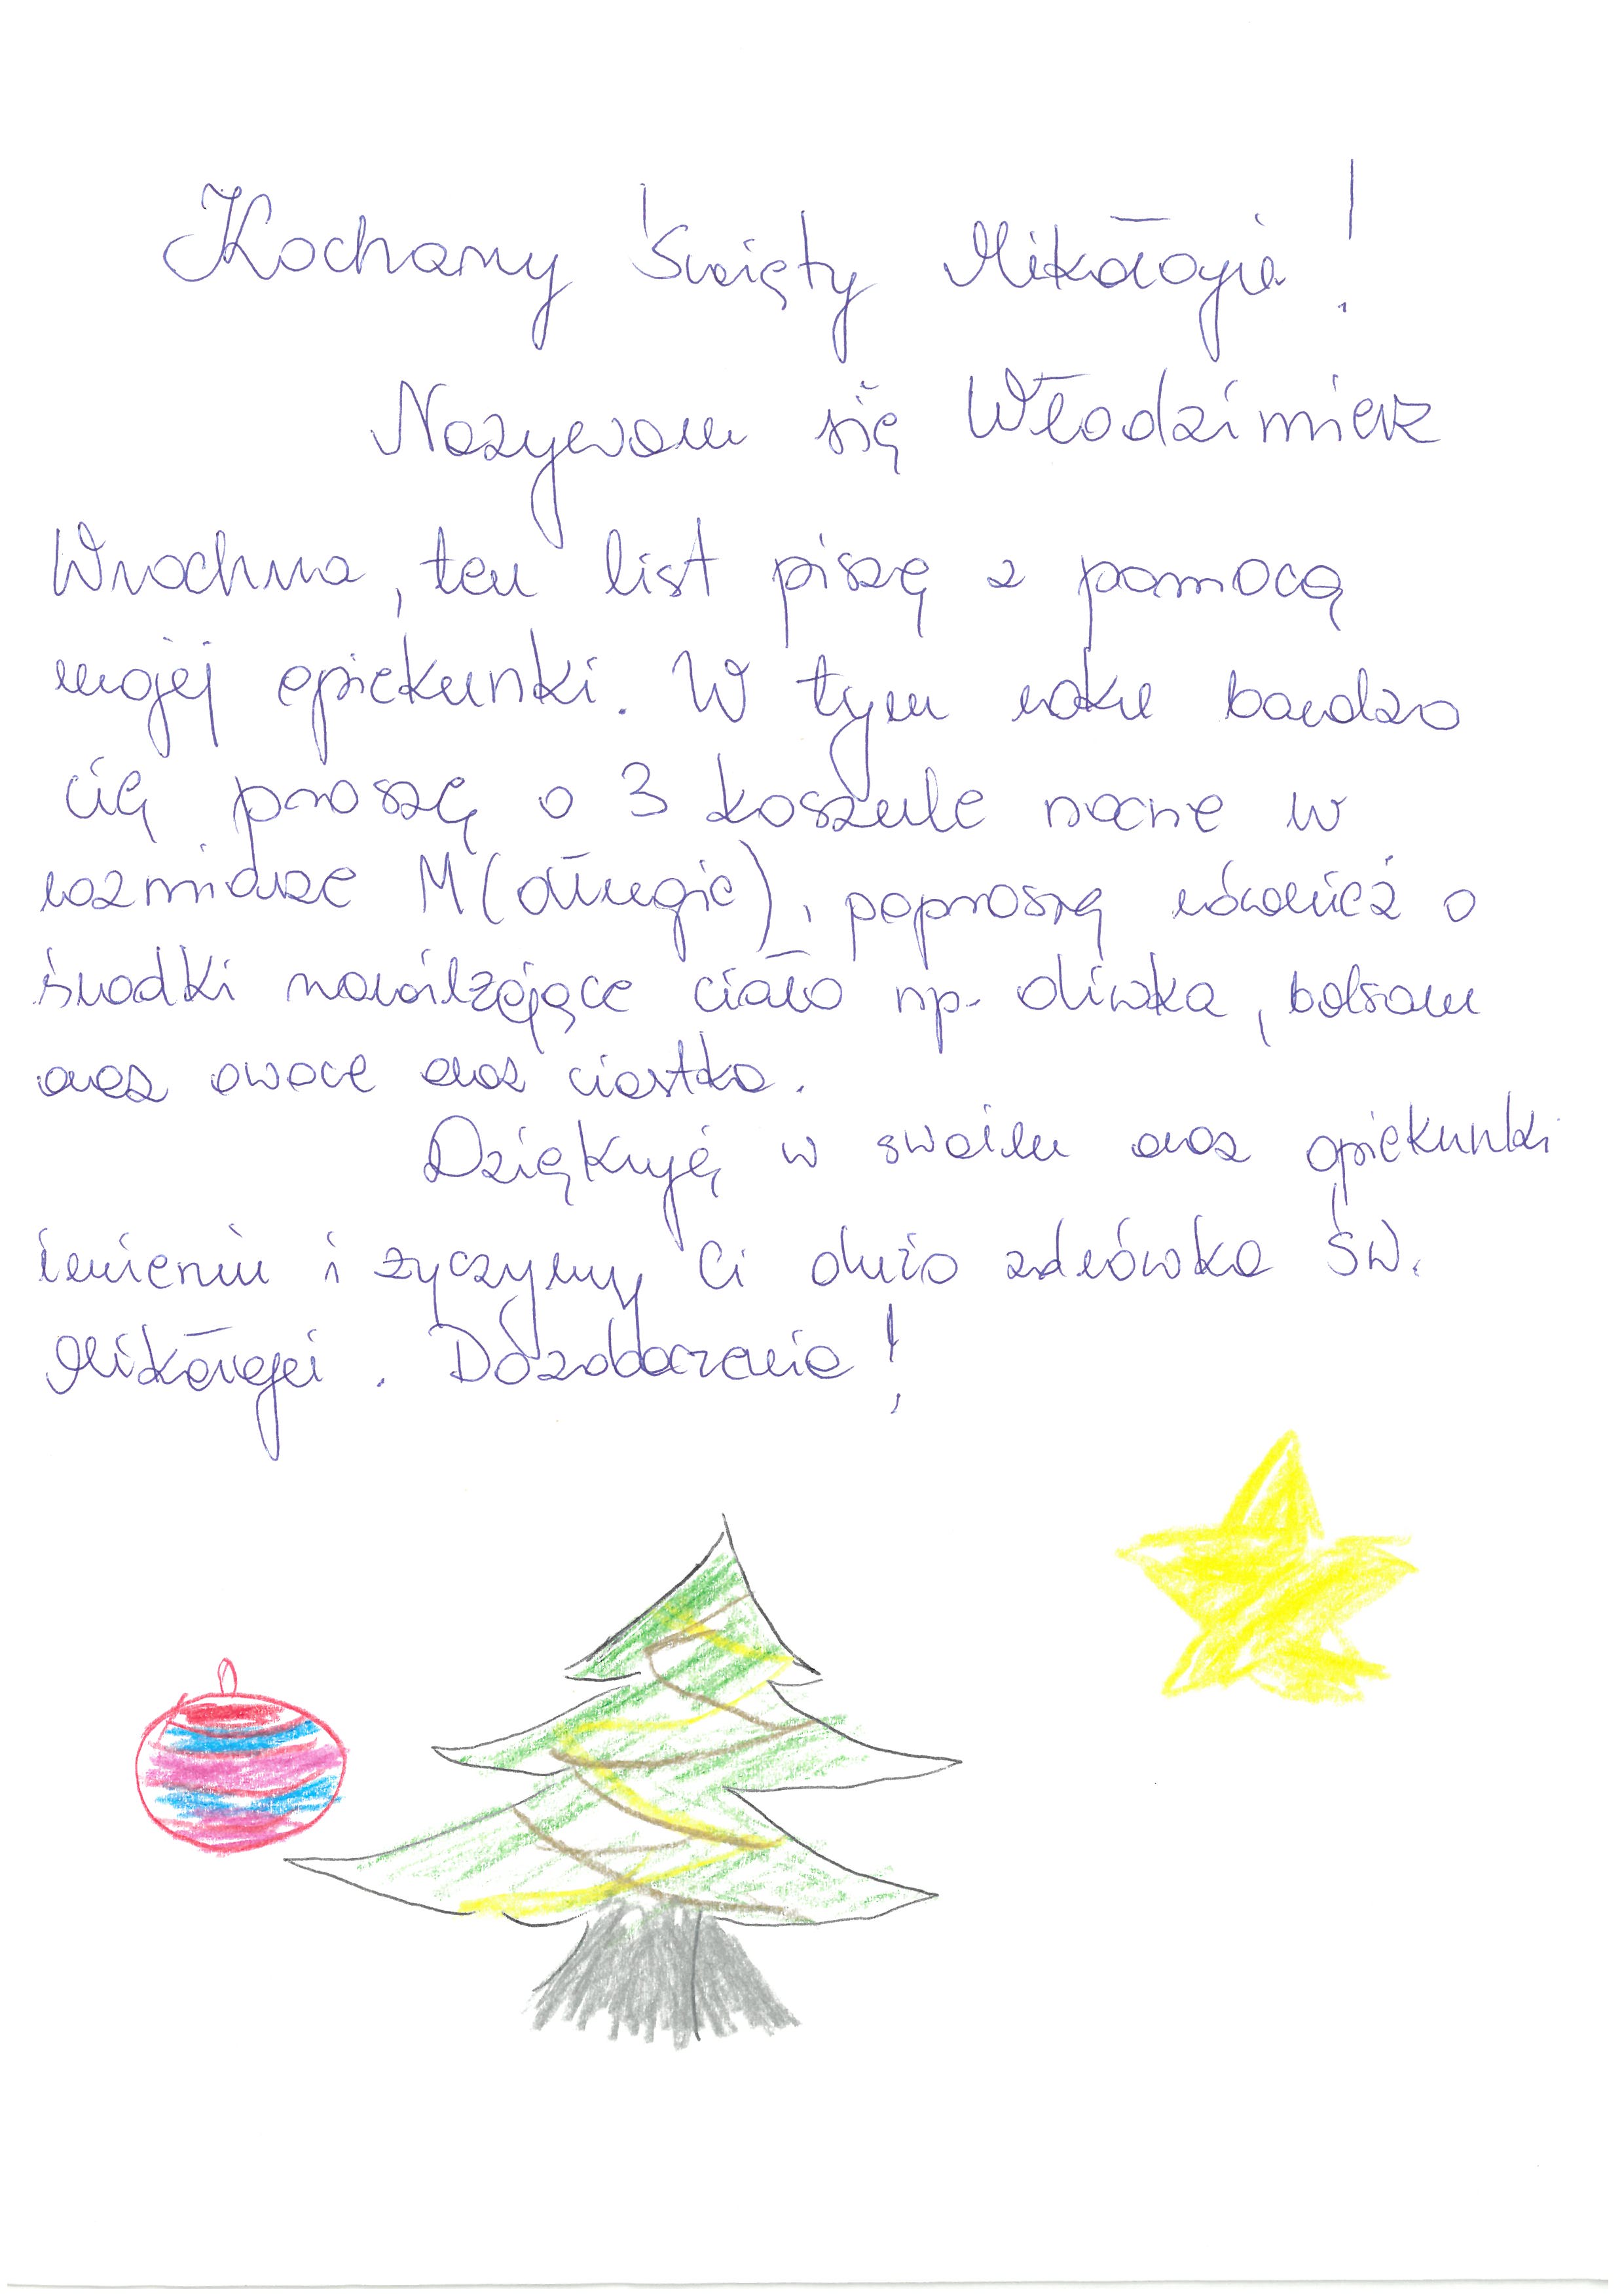 Kochany Święty Mikołaju!
Nazywam się Włodzimierz
Wrochna, ten list piszę z pomocą
mojej opiekunki. W tym roku bardzo
cię proszę o 3 koszule nocne w
rozmiarze M (długie), poproszę również o
środki nawilżające ciało np. oliwka, balsam
oraz owoce oraz ciastka.
Dziękuję w swoim oraz opiekunki
imieniu i życzymy Ci dużo zdrówka Św.
Mikołaju. Dozobaczenia!